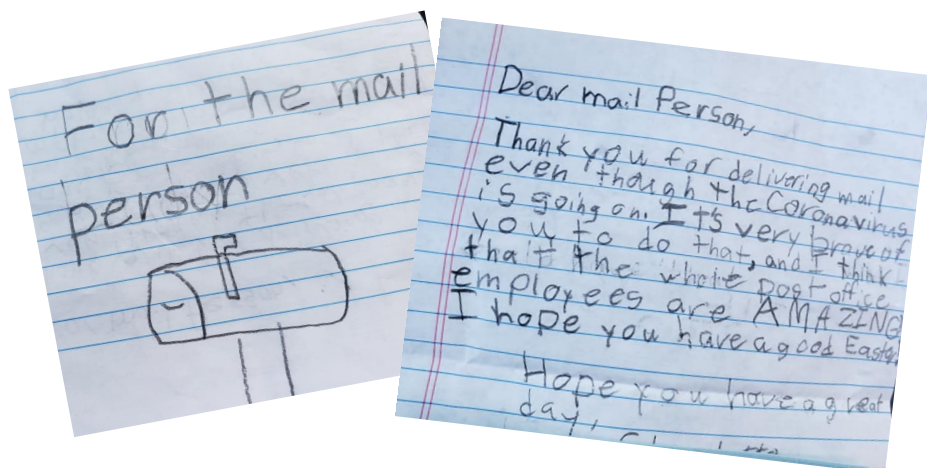 For the mail
person
Dear mail Person,
Thank you for delivering mail
even though the Coronavirus
is going on. It's very brave of
you to do that, and I think
that the whole post office
employees are AMAZING
I hope you have a good Easter
Hope you have a great
day,